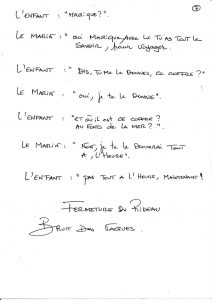 L'ENFANT : "MAGIQUE?".
LE MARIN : " OUI MAGIQUE, AVEC LE TU AS TOUT LE
SAVOIR, pour VOYAGER.
L'ENFANT : " DIS, TU ME LE DONNES, CE COFFRE ?"
LE MARIN : " OUI, je te le DONNE".
L'ENFANT : "ET OÙ IL EST CE COFFRE ?
AU FOND DE LA MER ? ".
LE MARIN : " je te le DONNERAI TOUT
À L'HEURE".
L'ENFANT : " pas TOUT A L'HEURE, MAINTENANT!
FERMETURE DU RIDEAU
BRUIT DES VAGUES.